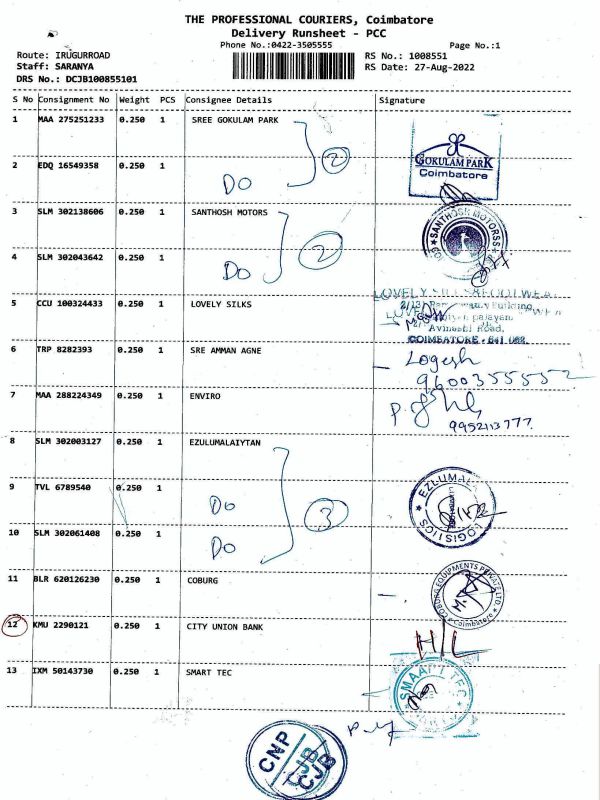 THE PROFESSIONAL COURIERS, Coimbatore
Delivery Runsheet - PCC
Phone No.:0422-3505555
Page No.:1
Route: IRUGURROAD
RS No.: 1008551
Staff: SARANYA
RS Date: 27-Aug-2022
DRS No.: DCJB100855101
S No Consignment No Weight PCS Consignee Details Signature
1 MAA 275251233 0.250 1 SREE GOKULAM PARK
2
GOKULAM PARK
Coimbatore
2 EDQ 16549358 0.250 1
DO
3 SLM 302138606 0.250 1 SANTHOSH MOTORS
SANTHOSH MOTORSS
2
4 SLM 302043642 0.250 1
DO
5 CCU 100324433 0.250 1 LOVELY SILKS
LOVELY SILKS
Avinashi Road,
COIMBATORE - 641 062.
6 TRP 8282393 0.250 1 SRE AMMAN AGNE
Logesh
9600355552
7 MAA 288224349 0.250 1 ENVIRO
9952113777
8 SLM 302003127 0.250 1 EZULUMALAIYTAN
9 TVL 6789540 0.250 1
DO
3
EZLUMALAI
LOGISTICS
10 SLM 302061408 0.250 1
DO
11 BLR 620126230 0.250 1 COBURG
COBURG EQUIPMENTS PRIVATE LTD.
Coimbatore
12 KMU 2290121 0.250 1 CITY UNION BANK
H/L
13 IXM 50143730 0.250 1 SMART TEC
SMAART TEC
CNP
CJB
CJB